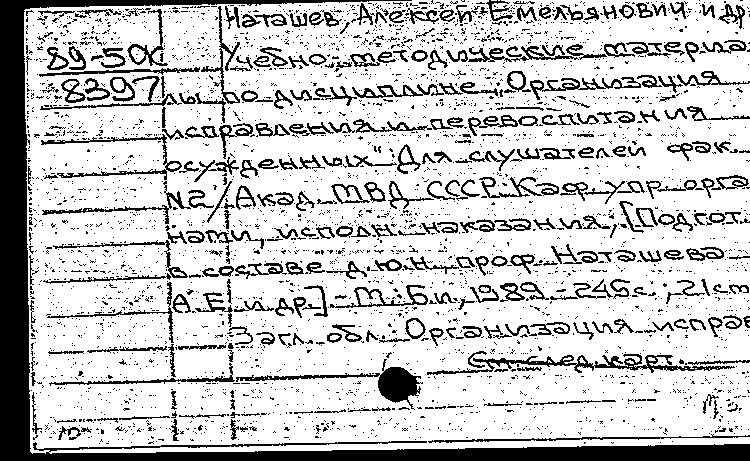 Наташев, Алексей Емельянович и др.
89-50К Учебно-методические материа-
8397 лы по дисциплине „Организация
исправления и перевоспитания
осужденных" Для слушателей фак.
N2 / Акад. МВД СССР. Каф. упр. орга-
нами, исполн. наказания; [Подгот.
в составе д.ю.н., проф. Наташева
А.Е. и др.] - М.: Б.и., 1989. - 246с.; 21см
Загл. обл.: Организация исправ
См. след. карт.